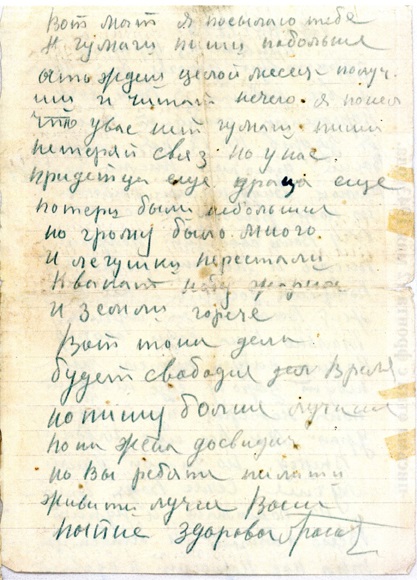 Вот мать я посылаю тебе
и гумаги пиши побольше
ать ждеш целой месец получ.
иш и читать нечего. я понел
что увас нит гумаги. пиши
нетеряй связ но унас.
придетца еще драца еще
потери были небольшии
но грому было много.
и легушки перестали
Квакат
и земли горече
Вот мона дела
будет свабодне дел Время
напишу больше лучше
пока жена досвидан
но Вы ребята
живити лучем Васи
патие здоровы